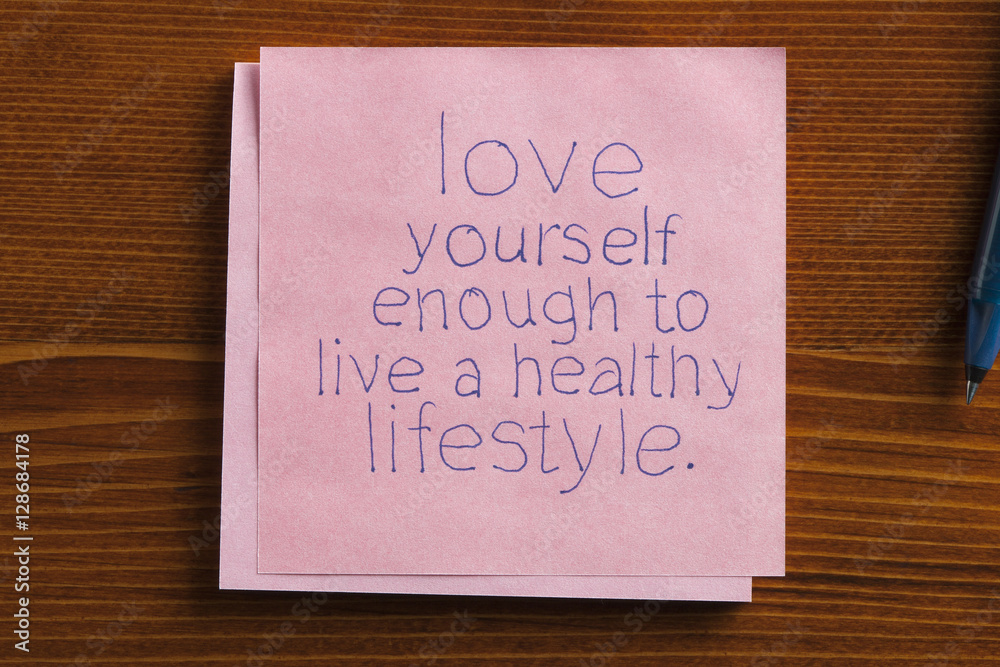 love
yourself
enough to
live a healthy
lifestyle.
Adobe Stock | #128684178